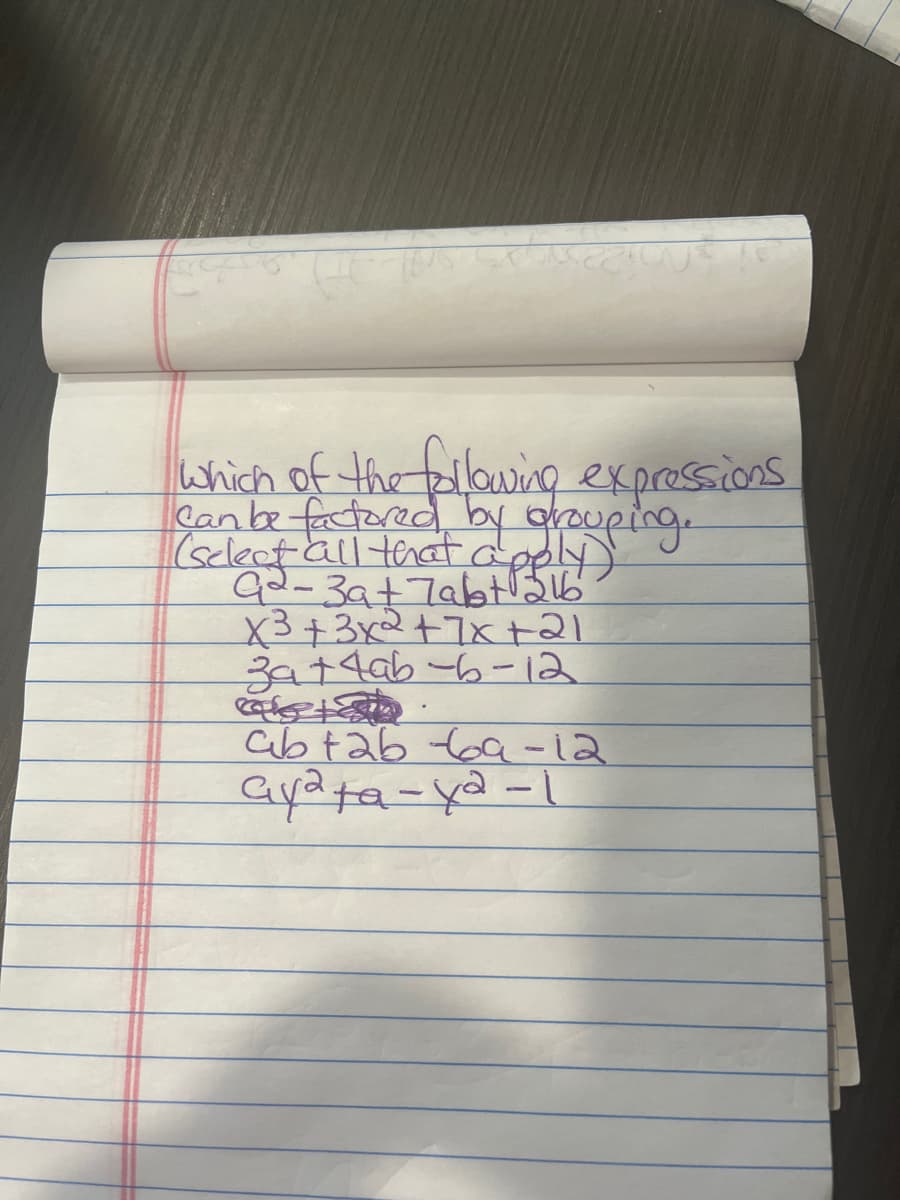 which of the following expressions
can be factored by grouping.
(select all that apply)
a²-3a+7ab+21b
x3+3x²+7x+21
3a+4ab-b-12
ab+2b-6a-12
ay²+a-y²-1